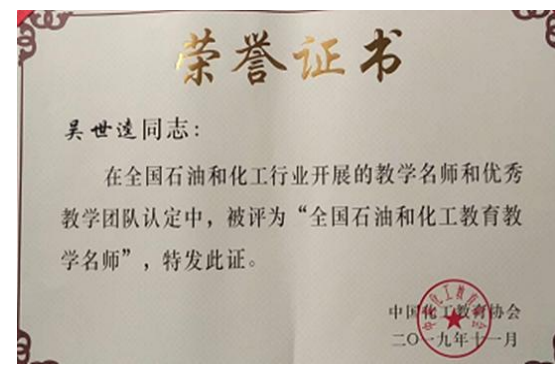 荣誉证书
吴世逵同志：
在全国石油和化工行业开展的教学名师和优秀
教学团队认定中，被评为“全国石油和化工教育教
学名师”，特发此证。
中国化工教育协会
二〇一九年十一月